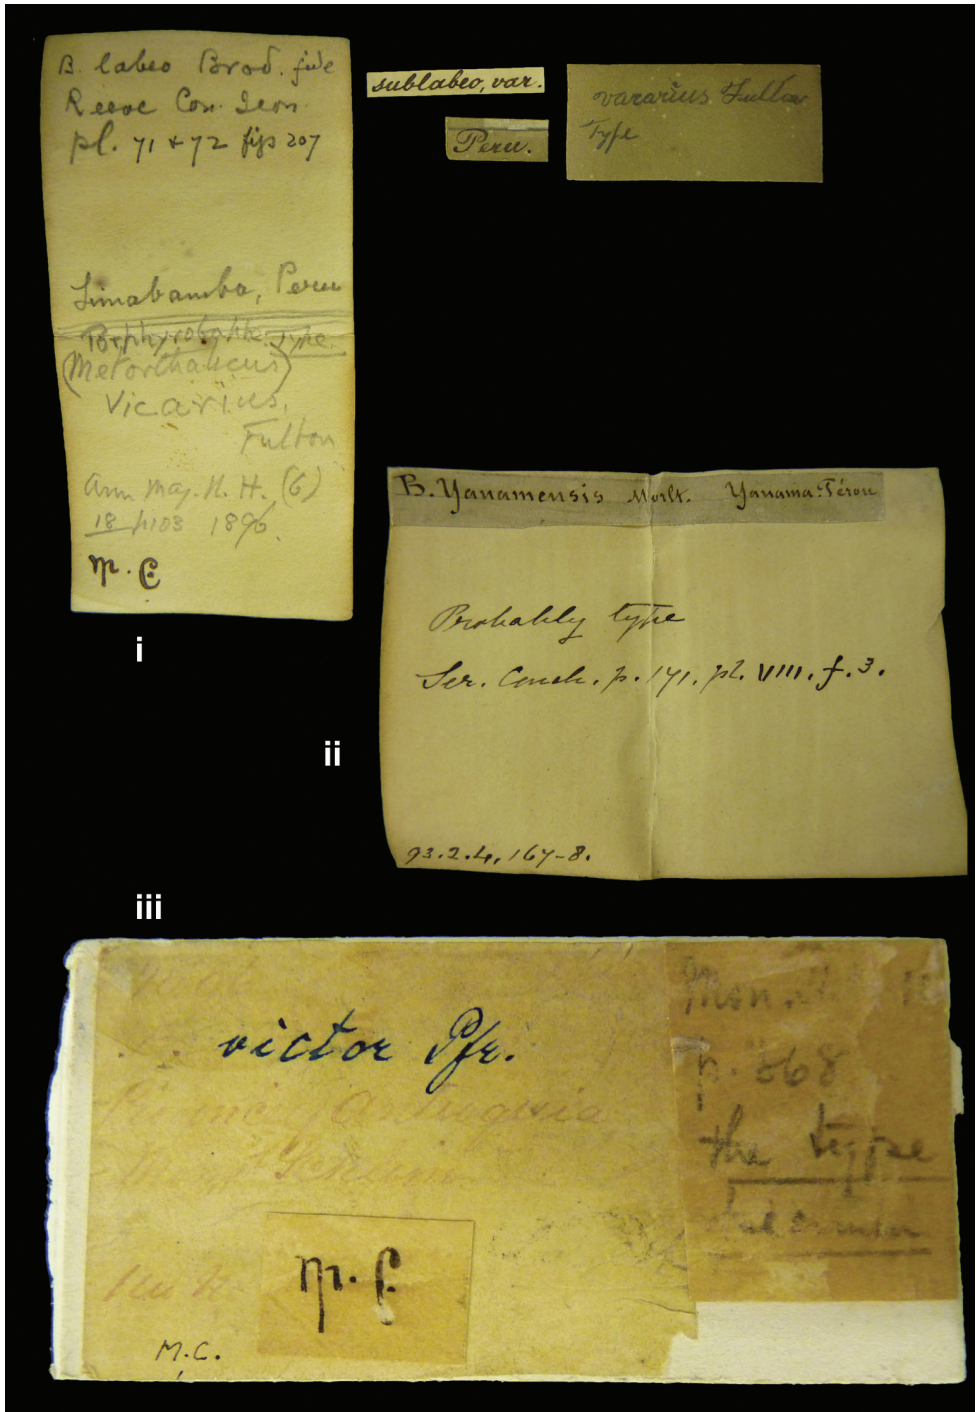 B. labeo Brod. fide
Reeve Con. Icon.
pl. 71 + 72 figs 207
Limabamba, Peru
Type
(Metorthalicus)
Vicarius,
Fulton
Ann Mag. N. H. (6)
18 p103 1896.
M. C
sublabeo, var.
Peru.
vararius Fulton
Type
i
B. Yanamensis Morlt. Yanama: Pérou
Probably type
Ser. Conch. p. 171. pl. VIII. f. 3.
93.2.4, 167-8.
ii
iii
victor Pfr.
Mon.
p. 368
the type
specimen
Province
M. C
M.C.